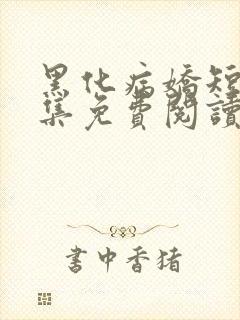 黑化病嬌短
集免費閱讀
書中香猪